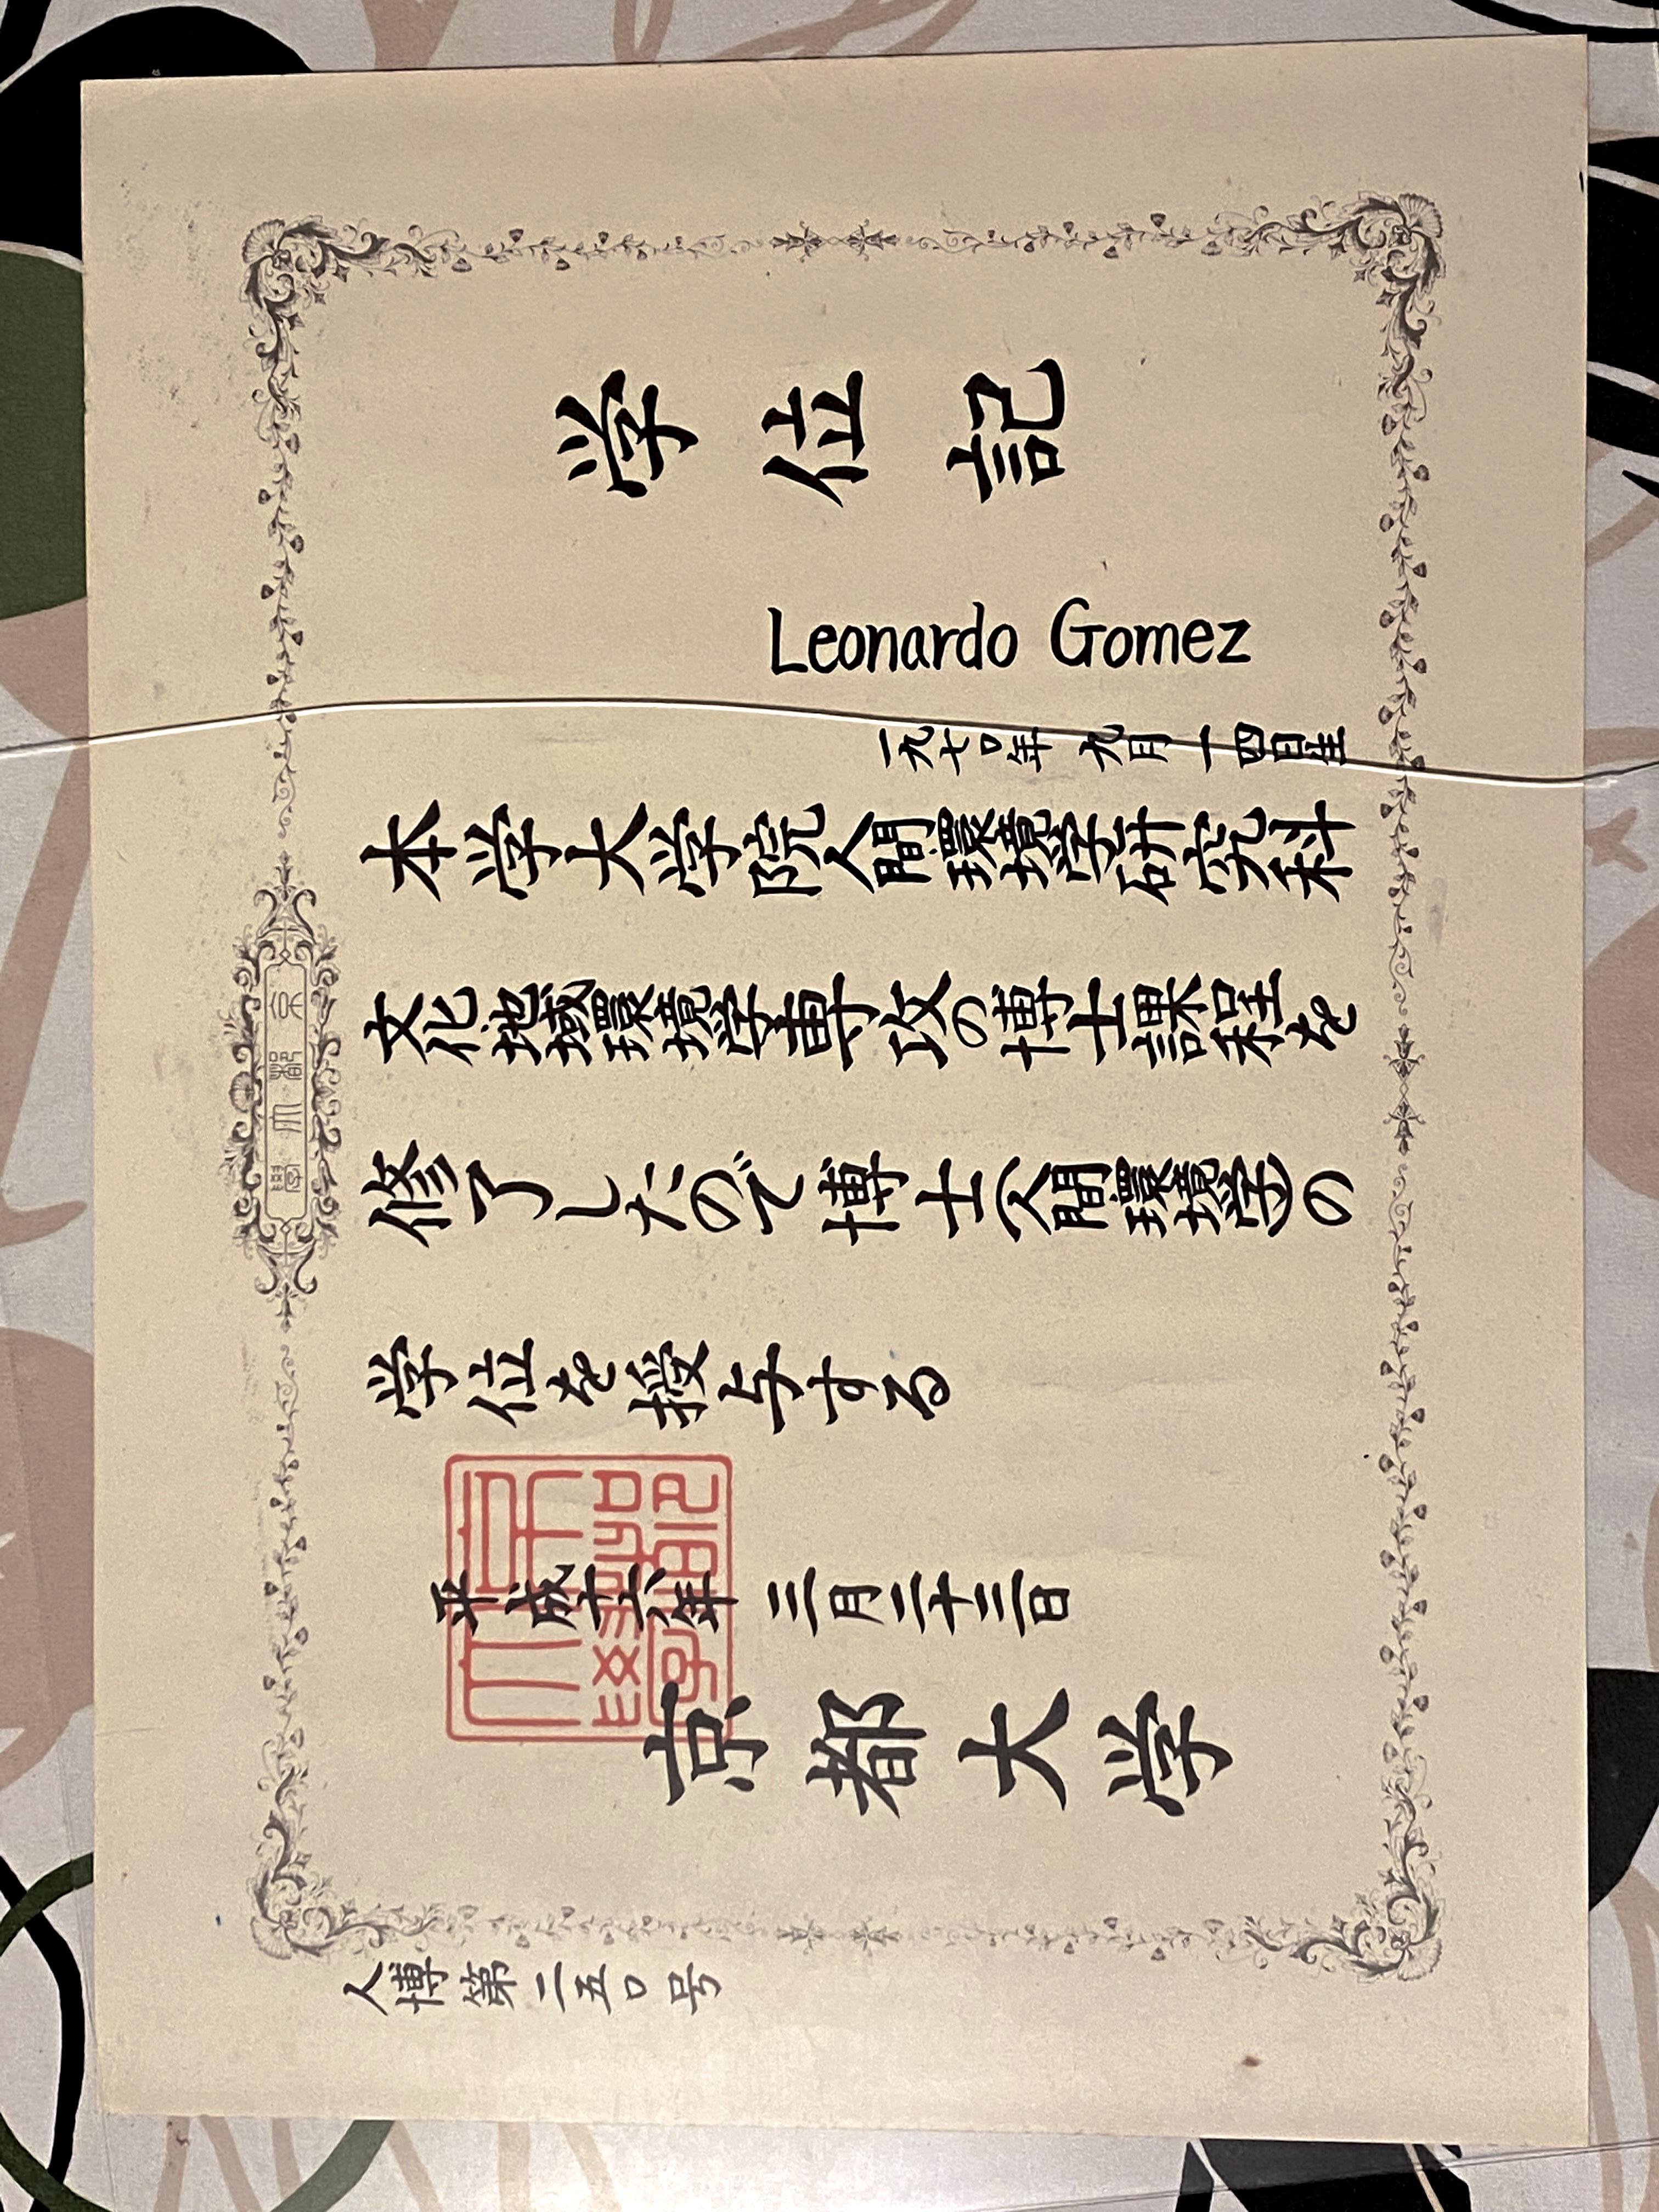 学位記
Leonardo Gomez
一九七〇年九月一四日生
本学大学院人間環境学研究科
文化地域環境学専攻の博士課程を
修了したので博士(人間環境学)の
学位を授与する
平成十六年三月二十三日
京都大学
人博第二五〇号